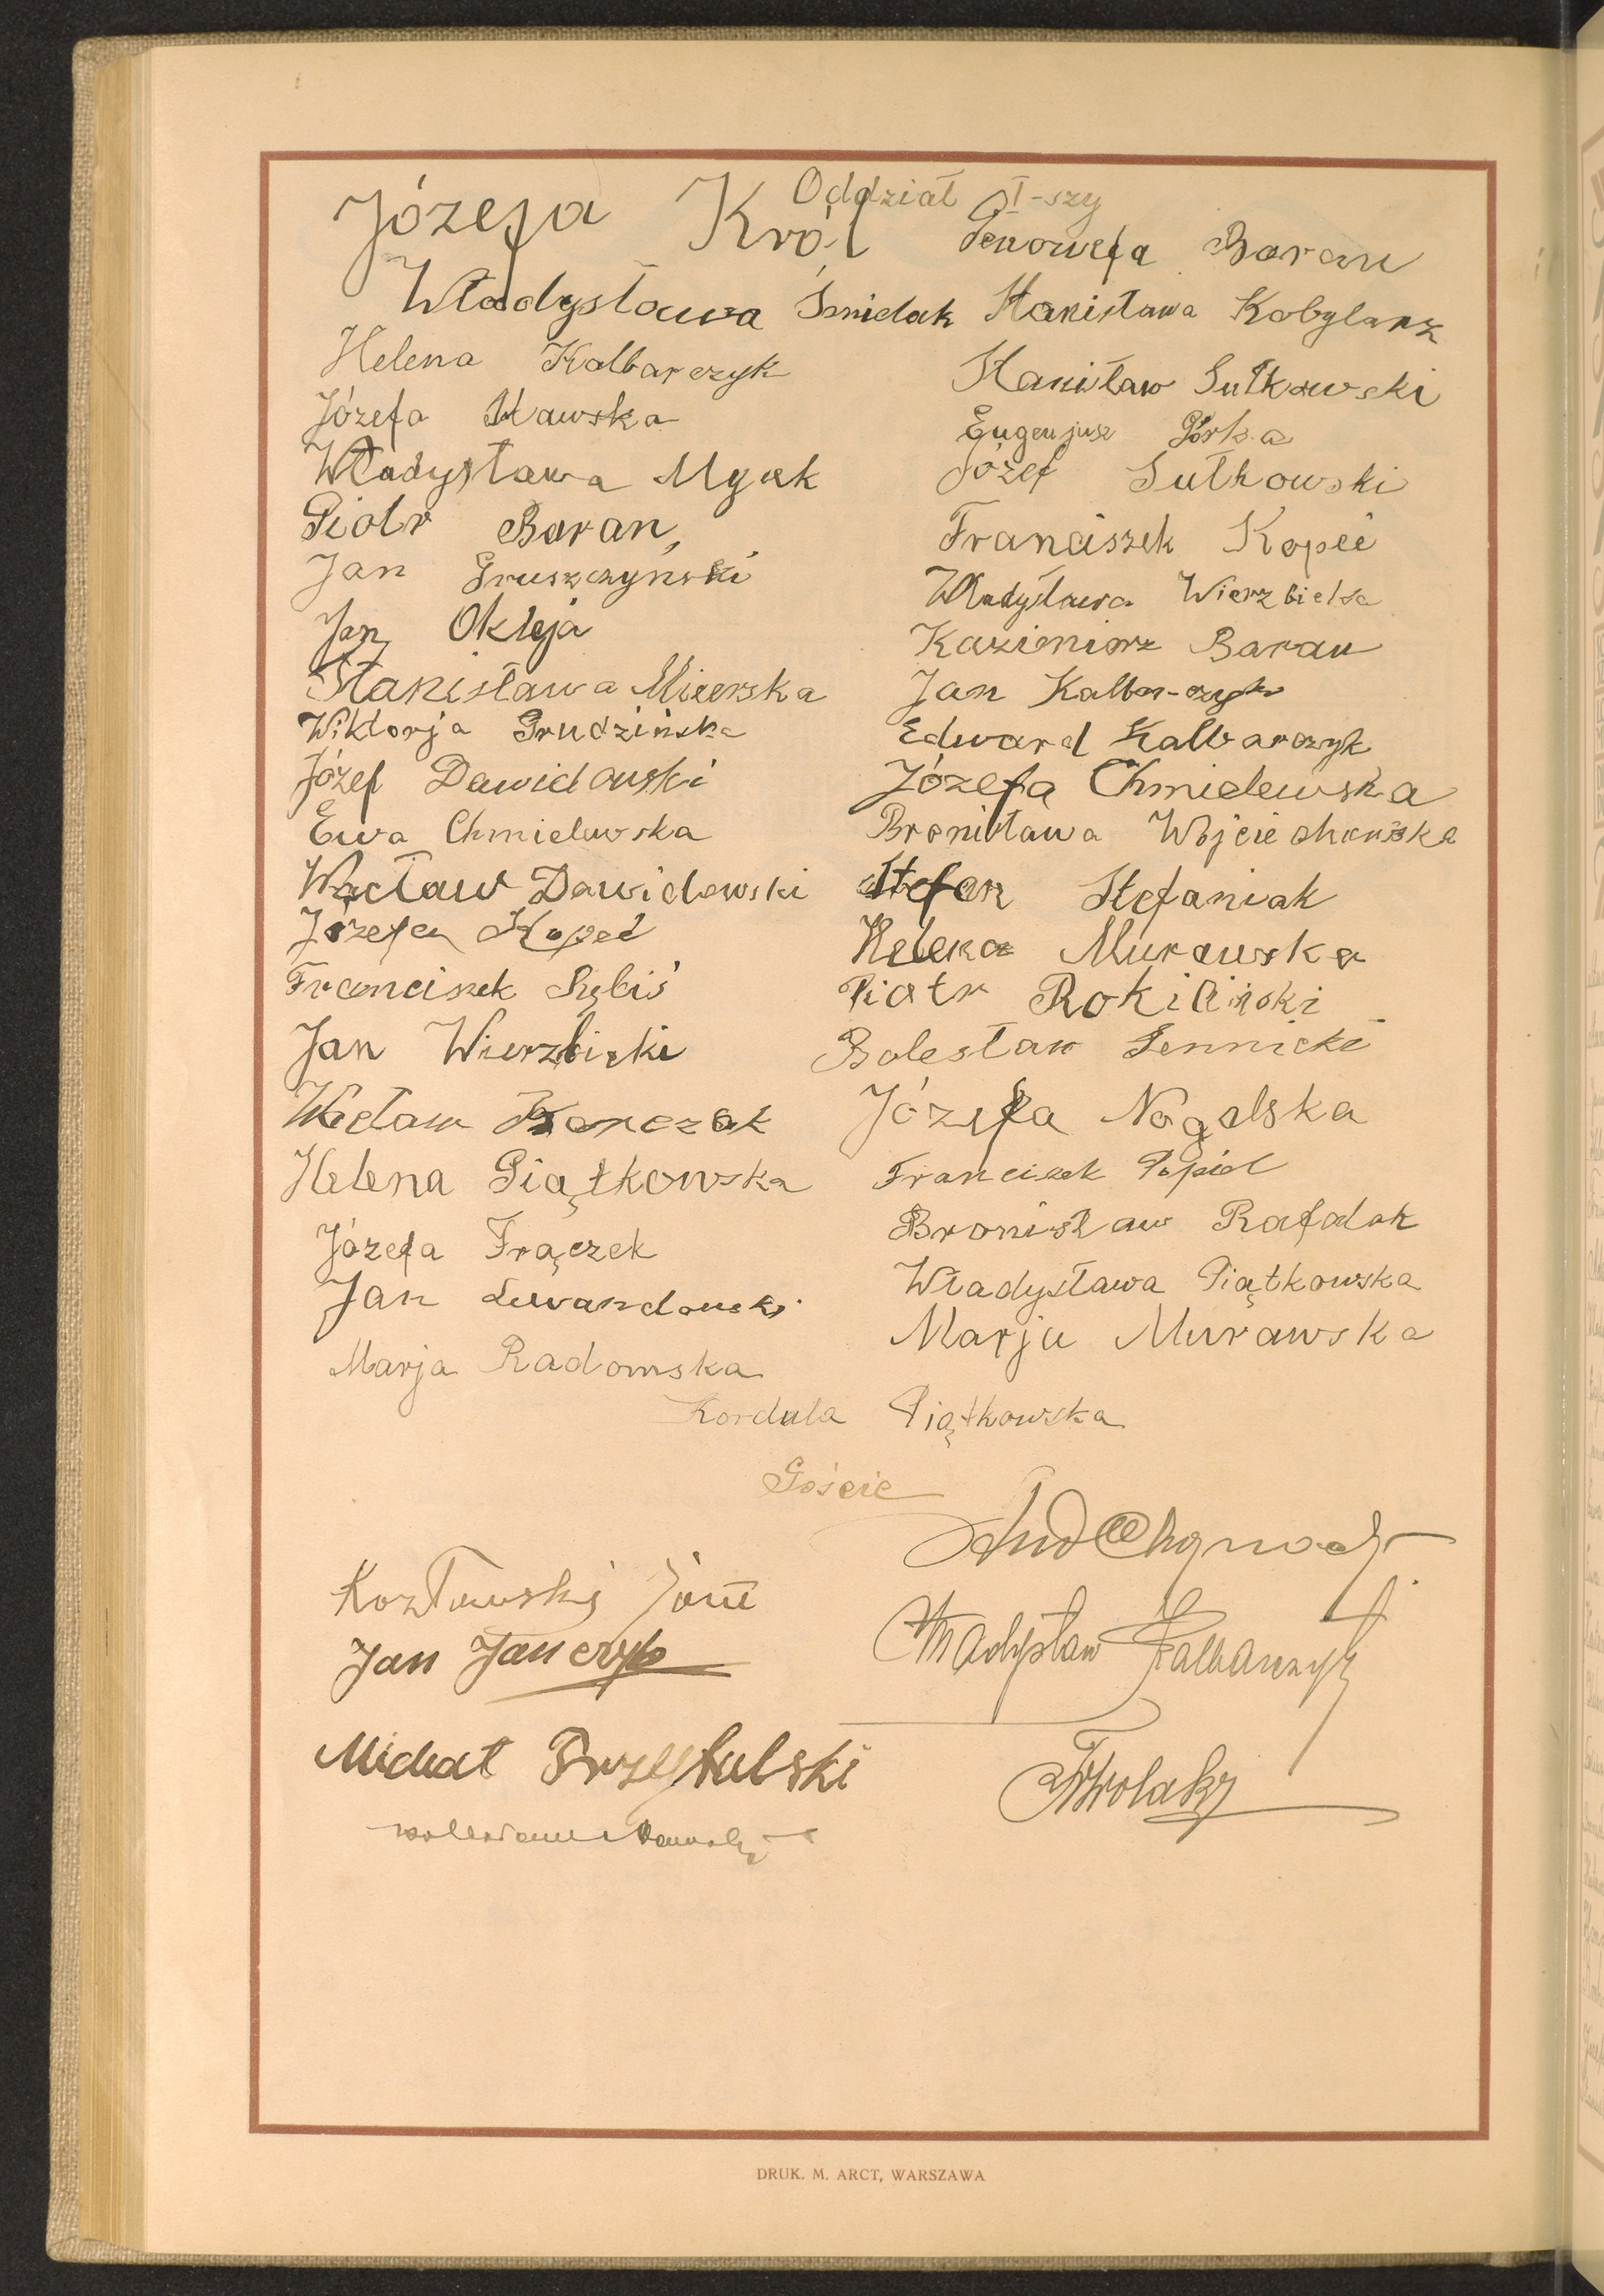 Oddział I-szy
Józefa Król
Genowefa Baran
Władysława Śmidak
Stanisława Kobylarz
Helena Kalbarczyk
Józefa
Władysława
Piotr Baran,
Jan Gruszczynski
Jan Okleja
Stanisława Mizerska
Wiktorja Grudzińska
Józef Dawidowski
Ewa Chmielewska
Wacław Dawidowski
Józefa Kopeć
Franciszek Rębiś
Jan Wierzbicki
Wacław Barczak
Helena Piątkowska
Józefa Frączek
Jan Lewandowski
Marja Radomska
Stanisław Sułkowski
Eugenjusz Górka
Józef Sułkowski
Franciszek Kopeć
Władysława Wierzbicka
Kazimierz Baran
Jan Kalbarczyk
Edward Kalbarczyk
Józefa Chmielewska
Bronisława Wojciechowska
Stefan Stefaniak
Helena Murawska
Piotr Rokiciński
Bolesław Sennicki
Józefa Nogalska
Franciszek Popiół
Bronisław Rafalak
Władysława Piątkowska
Marja Murawska
Kordula Piątkowska
Goście
Kozłowski Józef
Jan Janczyk
Michał Przybulski
Władysław Kalbarczyk
DRUK. M. ARCT, WARSZAWA